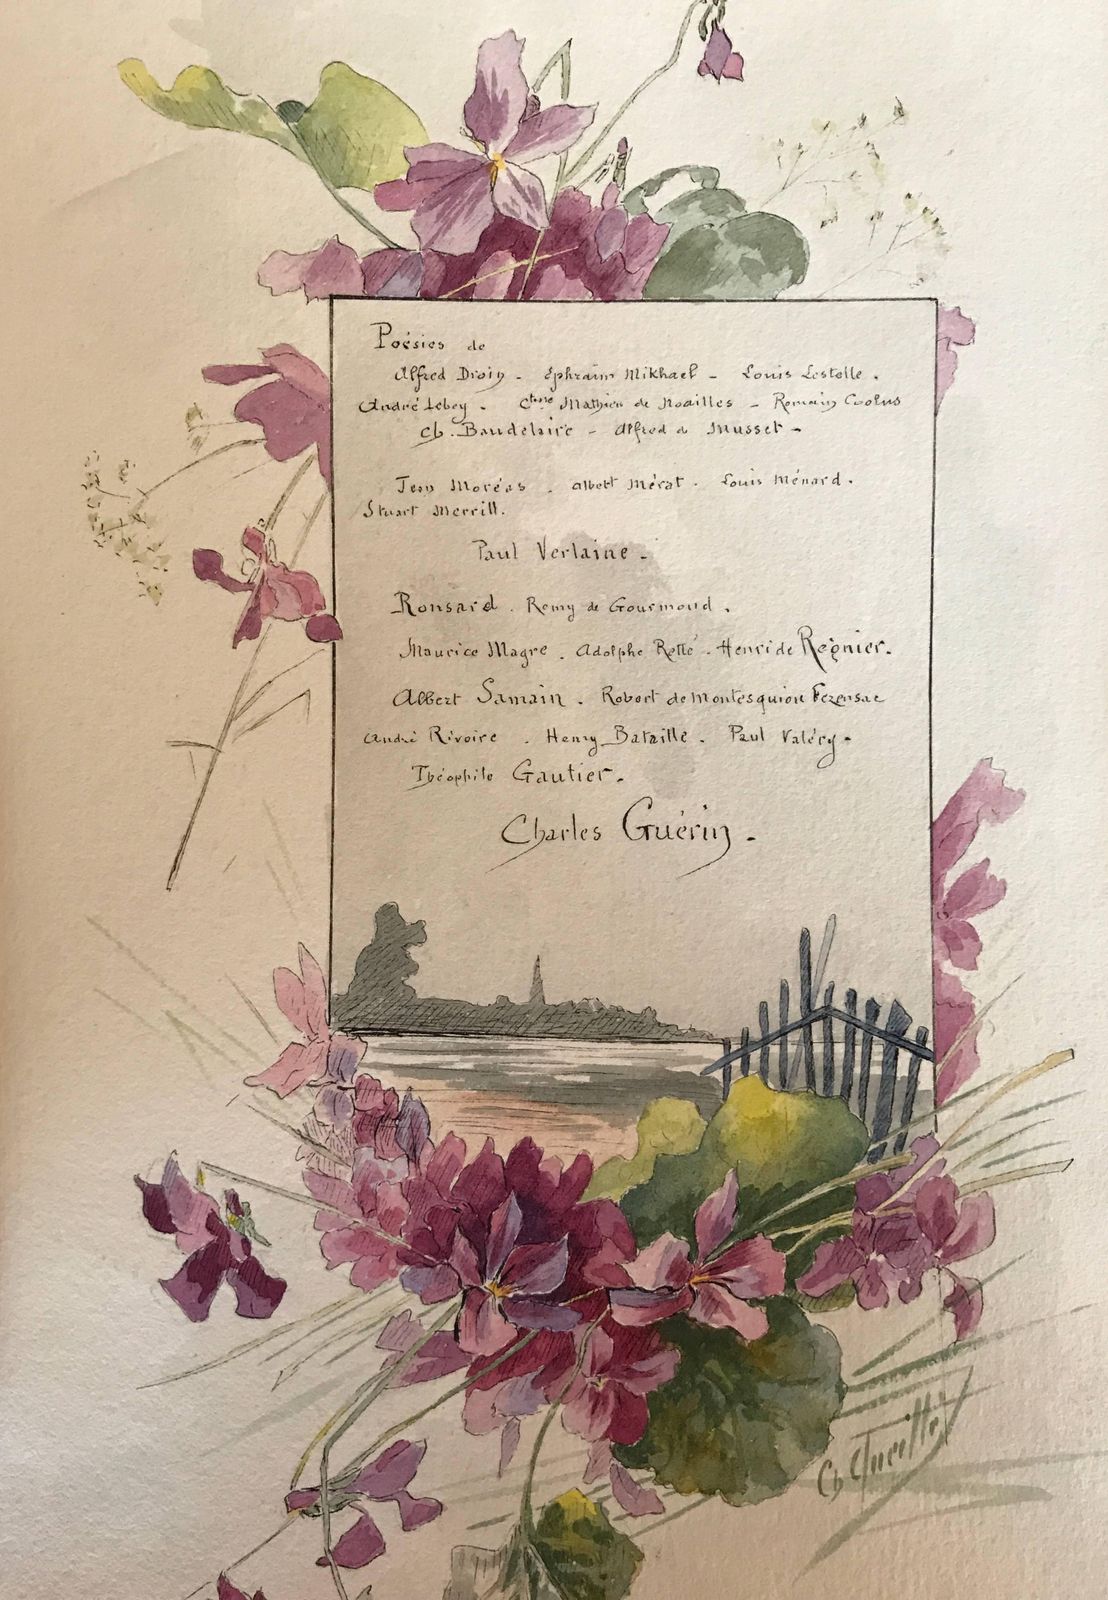 Poésies de
Alfred Droin - Ephraïm Mikhael - Louis Lestolle.
André Lebey - Ctesse Mathieu de Noailles - Romain Coolus
Ch. Baudelaire - Alfred de Musset -
Jean Moréas. Albert Mérat. Louis Ménard.
Stuart Merrill.
Paul Verlaine -
Ronsard. Remy de Gourmond.
Maurice Magre. Adolphe Retté. Henri de Régnier.
Albert Samain. Robert de Montesquiou Fezensac
André Rivoire. Henry Bataille. Paul Valéry.
Théophile Gautier.
Charles Guérin.
Ch